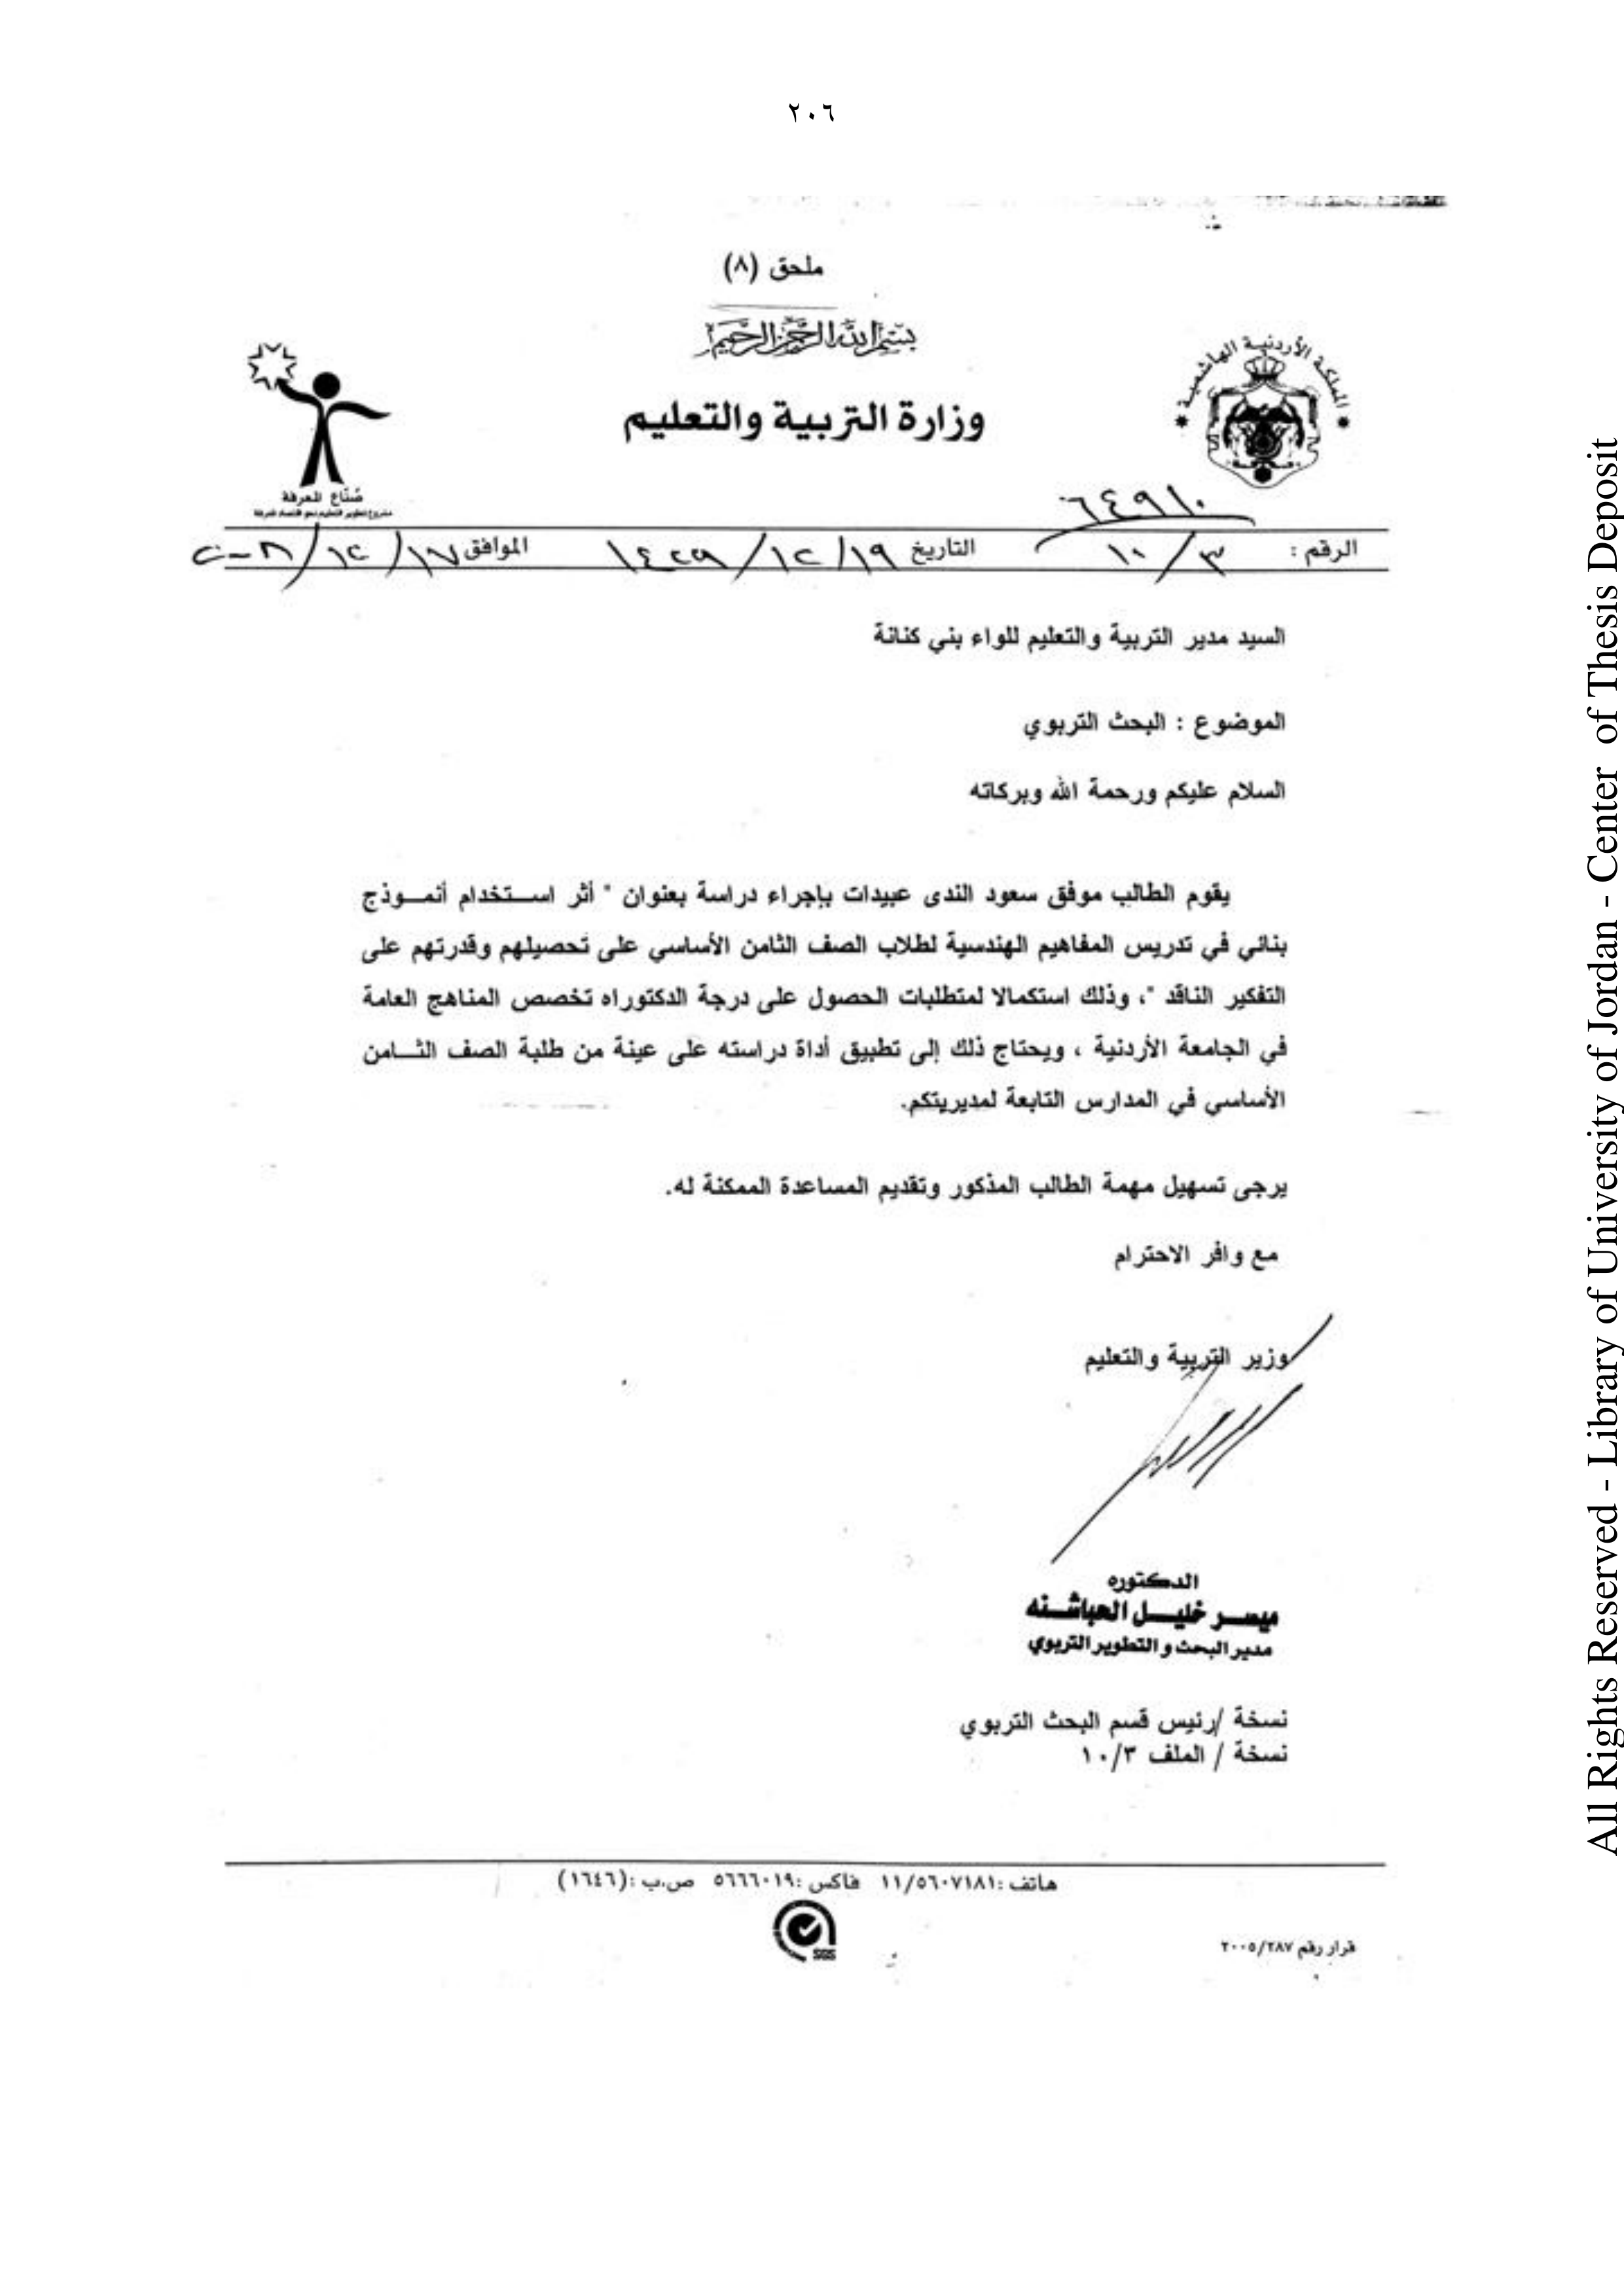 ٢٠٦
ملحق (٨)
بسم الله الرحمن الرحيم
المملكة الأردنية الهاشمية
وزارة التربية والتعليم
صُنّاع المعرفة
مشروع تطوير التعليم نحو اقتصاد المعرفة
٦٤٩١٠
الرقم : ١٠/٣
التاريخ ١٤٢٩/١٢/١٩
الموافق ٢٠٠٨/١٢/١٧
السيد مدير التربية والتعليم للواء بني كنانة
الموضوع : البحث التربوي
السلام عليكم ورحمة الله وبركاته
يقوم الطالب موفق سعود الندى عبيدات بإجراء دراسة بعنوان " أثر اســتخدام أنمــوذج
بنائي في تدريس المفاهيم الهندسية لطلاب الصف الثامن الأساسي على تحصيلهم وقدرتهم على
التفكير الناقد "، وذلك استكمالا لمتطلبات الحصول على درجة الدكتوراه تخصص المناهج العامة
في الجامعة الأردنية ، ويحتاج ذلك إلى تطبيق أداة دراسته على عينة من طلبة الصف الثــامن
الأساسي في المدارس التابعة لمديريتكم.
يرجى تسهيل مهمة الطالب المذكور وتقديم المساعدة الممكنة له.
مع وافر الاحترام
وزير التربية والتعليم
الدكتوره
ميســر خليــل الحباشــنه
مدير البحث و التطوير التربوي
نسخة /رئيس قسم البحث التربوي
نسخة / الملف ١٠/٣
هاتف :١١/٥٦٠٧١٨١ فاكس :٥٦٦٦٠١٩ ص.ب :(١٦٤٦)
SGS
قرار رقم ٢٠٠٥/٢٨٧
All Rights Reserved - Library of University of Jordan - Center of Thesis Deposit